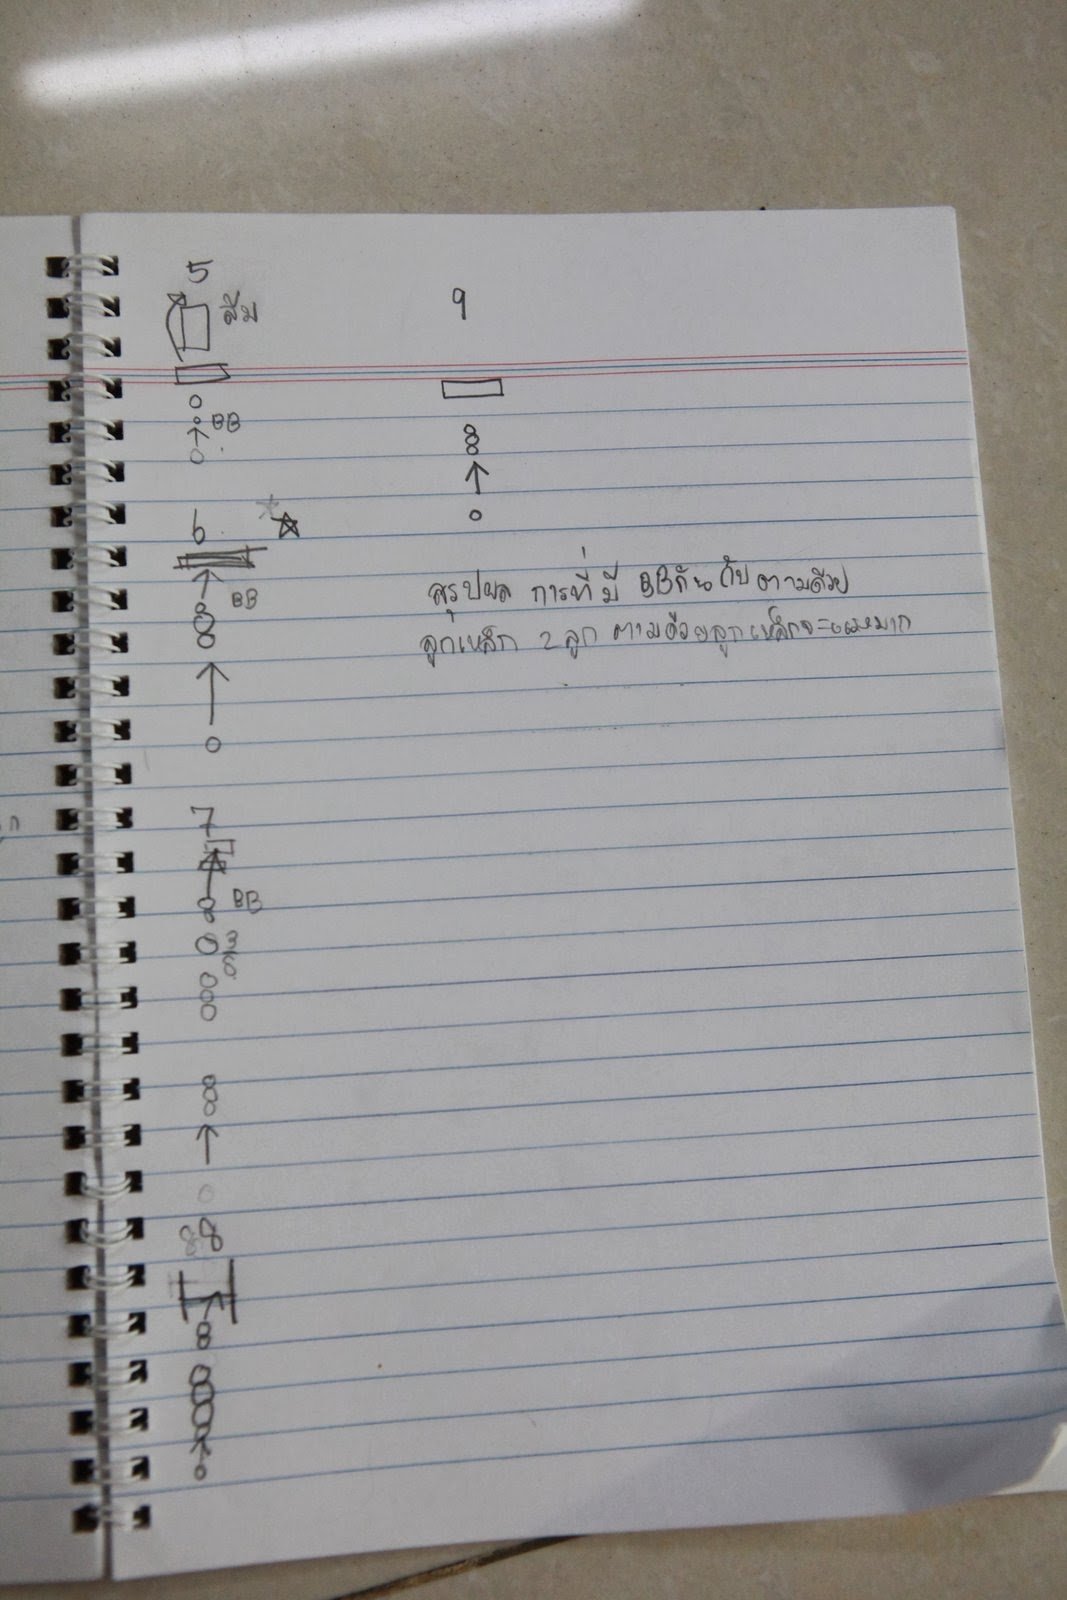 5
ล้ม
BB
6
BB
7
BB
8
9
สรุปผล การที่มี BBกัน กับ ตามด้วย
ลูกเหล็ก 2 ลูก ตามด้วยลูกเหล็กจะ